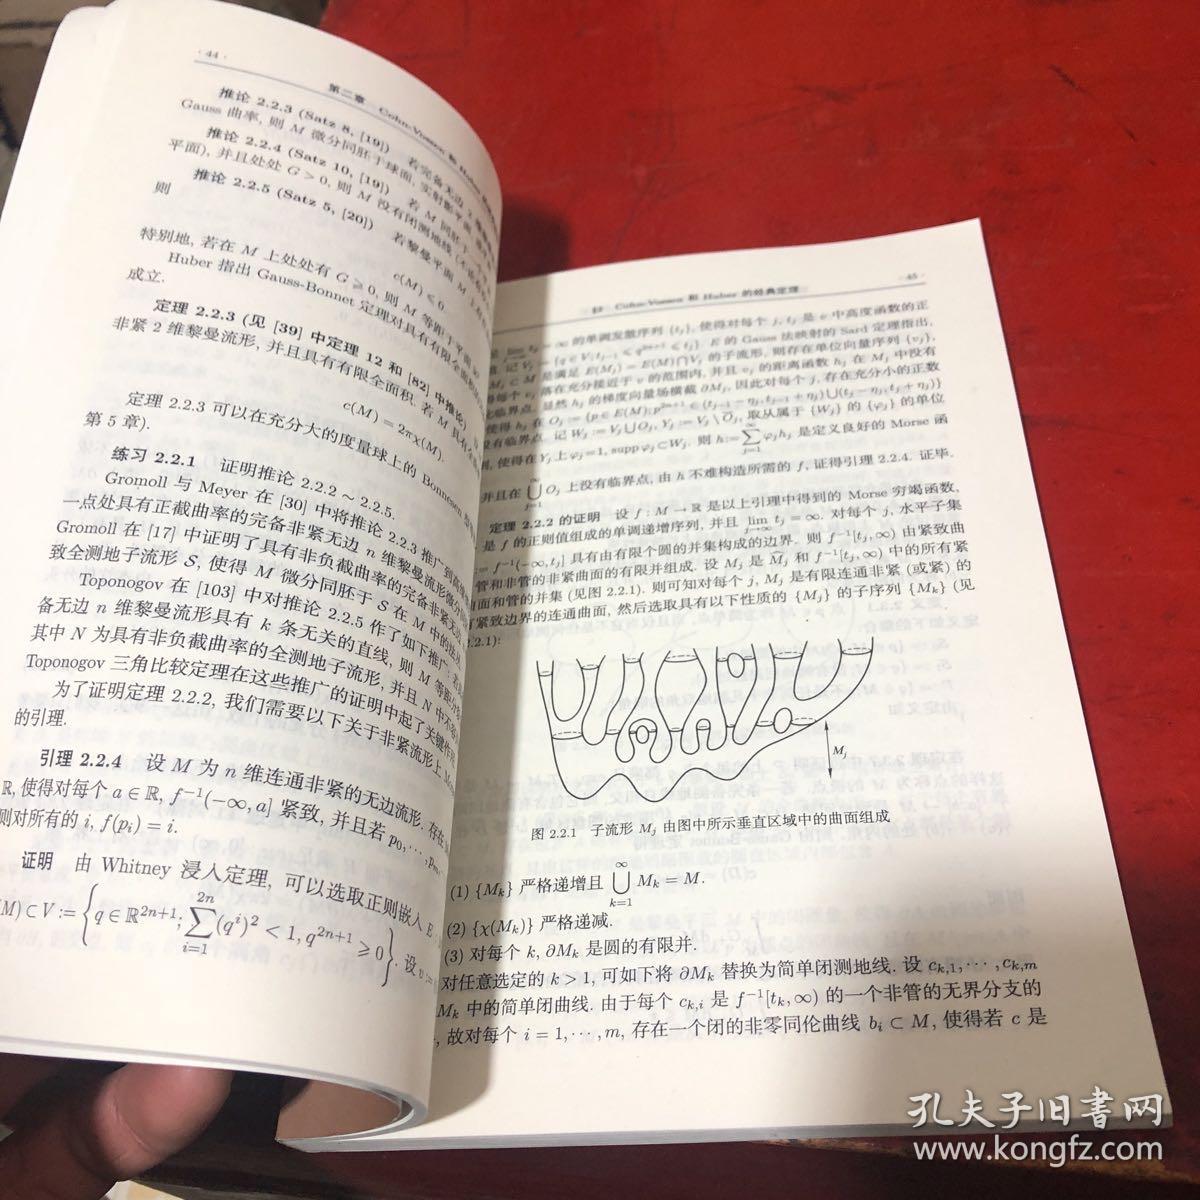 · 44 ·
第二章 Cohn-Vossen 和 Huber
推论 2.2.3 (Satz 8, [19]) 若完备无边 2
Gauss 曲率, 则 M 微分同胚于球面, 实射影平面
推论 2.2.4 (Satz 10, [19]) 若 M 同胚于
平面), 并且处处 G > 0, 则 M 没有闭测地线
推论 2.2.5 (Satz 5, [20]) 若黎曼平面 M 上
则
c(M) ⩽ 0.
特别地, 若在 M 上处处有 G ⩾ 0, 则 M 等距于平面
Huber 指出 Gauss-Bonnet 定理对具有有限全面积
成立.
定理 2.2.3 (见 [39] 中定理 12 和 [82] 中推论)
非紧 2 维黎曼流形, 并且具有有限全面积. 若 M 具有
c(M) = 2πχ(M).
定理 2.2.3 可以在充分大的度量球上的 Bonnesen
第 5 章).
练习 2.2.1 证明推论 2.2.2 ~ 2.2.5.
Gromoll 与 Meyer 在 [30] 中将推论 2.2.3 推广到高维
一点处具有正截曲率的完备非紧无边 n 维黎曼流形微分
Gromoll 在 [17] 中证明了具有非负截曲率的完备非紧无边
致全测地子流形 S, 使得 M 微分同胚于 S 在 M 中的法丛.
Toponogov 在 [103] 中对推论 2.2.5 作了如下推广: 若
备无边 n 维黎曼流形具有 k 条无关的直线, 则 M 等距
其中 N 为具有非负截曲率的全测地子流形, 并且 N 中不
Toponogov 三角比较定理在这些推广的证明中起了关键作
为了证明定理 2.2.2, 我们需要以下关于非紧流形上
的引理.
引理 2.2.4 设 M 为 n 维连通非紧的无边流形. 存在
ℝ, 使得对每个 a ∈ ℝ, f⁻¹(−∞, a] 紧致, 并且若 p₀, ⋯, p
则对所有的 i, f(pᵢ) = i.
证明 由 Whitney 浸入定理, 可以选取正则嵌入 E
(M) ⊂ V := {q ∈ ℝ²ⁿ⁺¹; ∑_{i=1}^{2n} (qⁱ)² < 1, q²ⁿ⁺¹ ⩾ 0}. 设 v :=
Cohn-Vossen 和 Huber 的经典定理
· 45 ·
lim tⱼ = ∞ 的单调发散序列 {tⱼ}, 使得对每个 j, tⱼ 是 v 中高度函数的正
记 Vⱼ := {q ∈ V; tⱼ₋₁ ⩽ q²ⁿ⁺¹ ⩽ tⱼ}. E 的 Gauss 法映射的 Sard 定理指出,
Mⱼ ⊂ M 是满足 E(Mⱼ) = E(M) ⋂ Vⱼ 的子流形, 则存在单位向量序列 {vⱼ},
得每个 vⱼ 落在充分接近于 v 的范围内, 并且 vⱼ 的距离函数 hⱼ 在 Mⱼ 中没有
临界点. 显然 hⱼ 的梯度向量场横截 ∂Mⱼ, 因此对每个 j, 存在充分小的正数
使得 hⱼ 在 Oⱼ := {p ∈ E(M); p²ⁿ⁺¹ ∈ (tⱼ₋₁ − ηⱼ, tⱼ₋₁ + ηⱼ) ⋃ (tⱼ − ηⱼ, tⱼ + ηⱼ)}
没有临界点. 记 Wⱼ := Vⱼ ⋃ Oⱼ, Yⱼ := Vⱼ \ Oⱼ, 取从属于 {Wⱼ} 的 {φⱼ} 的单位
使得在 Yⱼ 上 φⱼ = 1, supp φⱼ ⊂ Wⱼ. 则 h := ∑_{j=1}^{∞} φⱼhⱼ 是定义良好的 Morse 函
并且在 ⋃_{j=1}^{∞} Oⱼ 上没有临界点, 由 h 不难构造所需的 f, 证得引理 2.2.4. 证毕.
定理 2.2.2 的证明 设 f : M → ℝ 是以上引理中得到的 Morse 穷竭函数,
是 f 的正则值组成的单调递增序列, 并且 lim_{j→∞} tⱼ = ∞. 对每个 j, 水平子集
:= f⁻¹(−∞, tⱼ] 具有由有限个圆的并集构成的边界. 则 f⁻¹[tⱼ, ∞) 由紧致曲
管和非管的非紧曲面的有限并组成. 设 Mⱼ 是 M̄ⱼ 和 f⁻¹[tⱼ, ∞) 中的所有紧
曲面和管的并集 (见图 2.2.1). 则可知对每个 j, Mⱼ 是有限连通非紧 (或紧) 的
有紧致边界的连通曲面, 然后选取具有以下性质的 {Mⱼ} 的子序列 {Mₖ} (见
2.2.1):
Mⱼ
图 2.2.1 子流形 Mⱼ 由图中所示垂直区域中的曲面组成
(1) {Mₖ} 严格递增且 ⋃_{k=1}^{∞} Mₖ = M.
(2) {χ(Mₖ)} 严格递减.
(3) 对每个 k, ∂Mₖ 是圆的有限并.
对任意选定的 k > 1, 可如下将 ∂Mₖ 替换为简单闭测地线. 设 cₖ,₁, ⋯, cₖ,ₘ
Mₖ 中的简单闭曲线. 由于每个 cₖ,ᵢ 是 f⁻¹[tₖ, ∞) 的一个非管的无界分支的
, 故对每个 i = 1, ⋯, m, 存在一个闭的非零同伦曲线 bᵢ ⊂ M, 使得若 c 是
孔夫子旧书网
www.kongfz.com